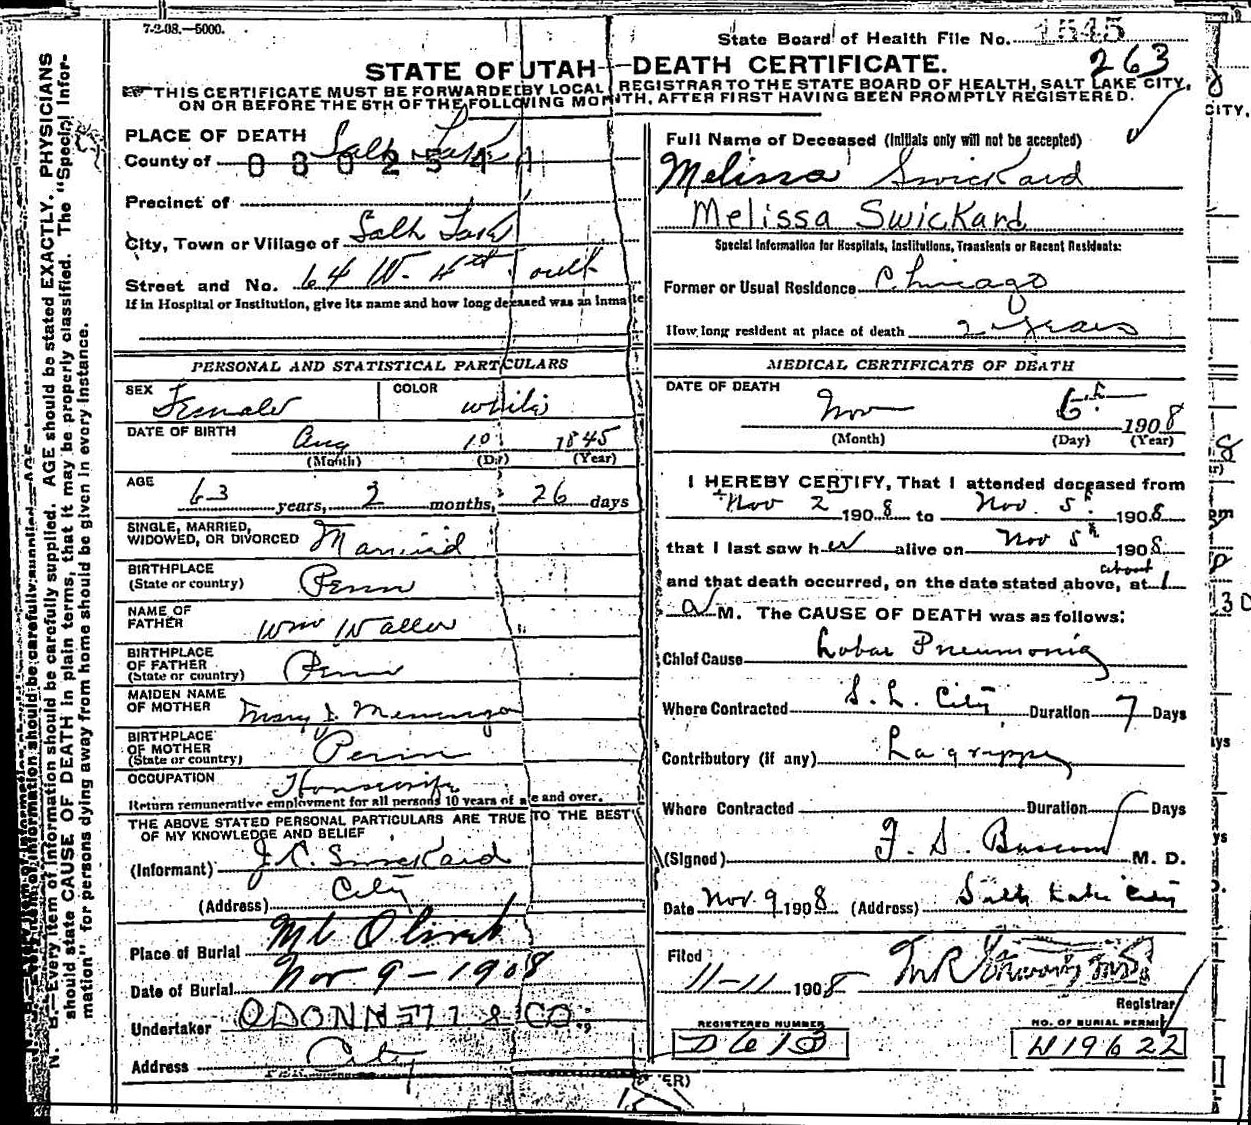 7-2-08.—5000.
State Board of Health File No. 1545
263
STATE OF UTAH—DEATH CERTIFICATE.
THIS CERTIFICATE MUST BE FORWARDED BY LOCAL REGISTRAR TO THE STATE BOARD OF HEALTH, SALT LAKE CITY,
ON OR BEFORE THE 5TH OF THE FOLLOWING MONTH, AFTER FIRST HAVING BEEN PROMPTLY REGISTERED.
N. B.—Every item of information should be carefully supplied. AGE should be stated EXACTLY. PHYSICIANS
should state CAUSE OF DEATH in plain terms, that it may be properly classified. The "Special Infor-
mation" for persons dying away from home should be given in every instance.
PLACE OF DEATH
County of Salt Lake
0802541
Precinct of
City, Town or Village of Salt Lake
Street and No. 64 W. 4th South
If in Hospital or Institution, give its name and how long deceased was an inmate
PERSONAL AND STATISTICAL PARTICULARS
SEX Female COLOR white
DATE OF BIRTH Aug 10 1845
(Month) (Day) (Year)
AGE 63 years, 2 months, 26 days
SINGLE, MARRIED,
WIDOWED, OR DIVORCED Married
BIRTHPLACE
(State or country) Penn
NAME OF
FATHER Wm Waller
BIRTHPLACE
OF FATHER
(State or country) Penn
MAIDEN NAME
OF MOTHER Mary J.
BIRTHPLACE
OF MOTHER
(State or country) Penn
OCCUPATION Housewife
Return remunerative employment for all persons 10 years of age and over.
THE ABOVE STATED PERSONAL PARTICULARS ARE TRUE TO THE BEST
OF MY KNOWLEDGE AND BELIEF
(Informant) J. C. Swickard
(Address) City
Place of Burial Mt Olivet
Date of Burial Nov 9-1908
Undertaker ODONNELL & CO.
Address City
Full Name of Deceased (Initials only will not be accepted)
Melissa Swickard
Melissa Swickard
Special Information for Hospitals, Institutions, Transients or Recent Residents:
Former or Usual Residence Chicago
How long resident at place of death 2 years
MEDICAL CERTIFICATE OF DEATH
DATE OF DEATH
Nov 6th 1908
(Month) (Day) (Year)
I HEREBY CERTIFY, That I attended deceased from
Nov 2 1908 to Nov. 5th 1908
that I last saw her alive on Nov 5th 1908
about
and that death occurred, on the date stated above, at 1
a M. The CAUSE OF DEATH was as follows:
Chief Cause Lobar Pneumonia
Where Contracted S. L. City Duration 7 Days
Contributory (if any) La grippe
Where Contracted Duration Days
(Signed) F. S. Bascom M. D.
Date Nov. 9 1908 (Address) Salt Lake City
Filed
11-11 1908
Registrar
REGISTERED NUMBER
D613
NO. OF BURIAL PERMIT
W19622